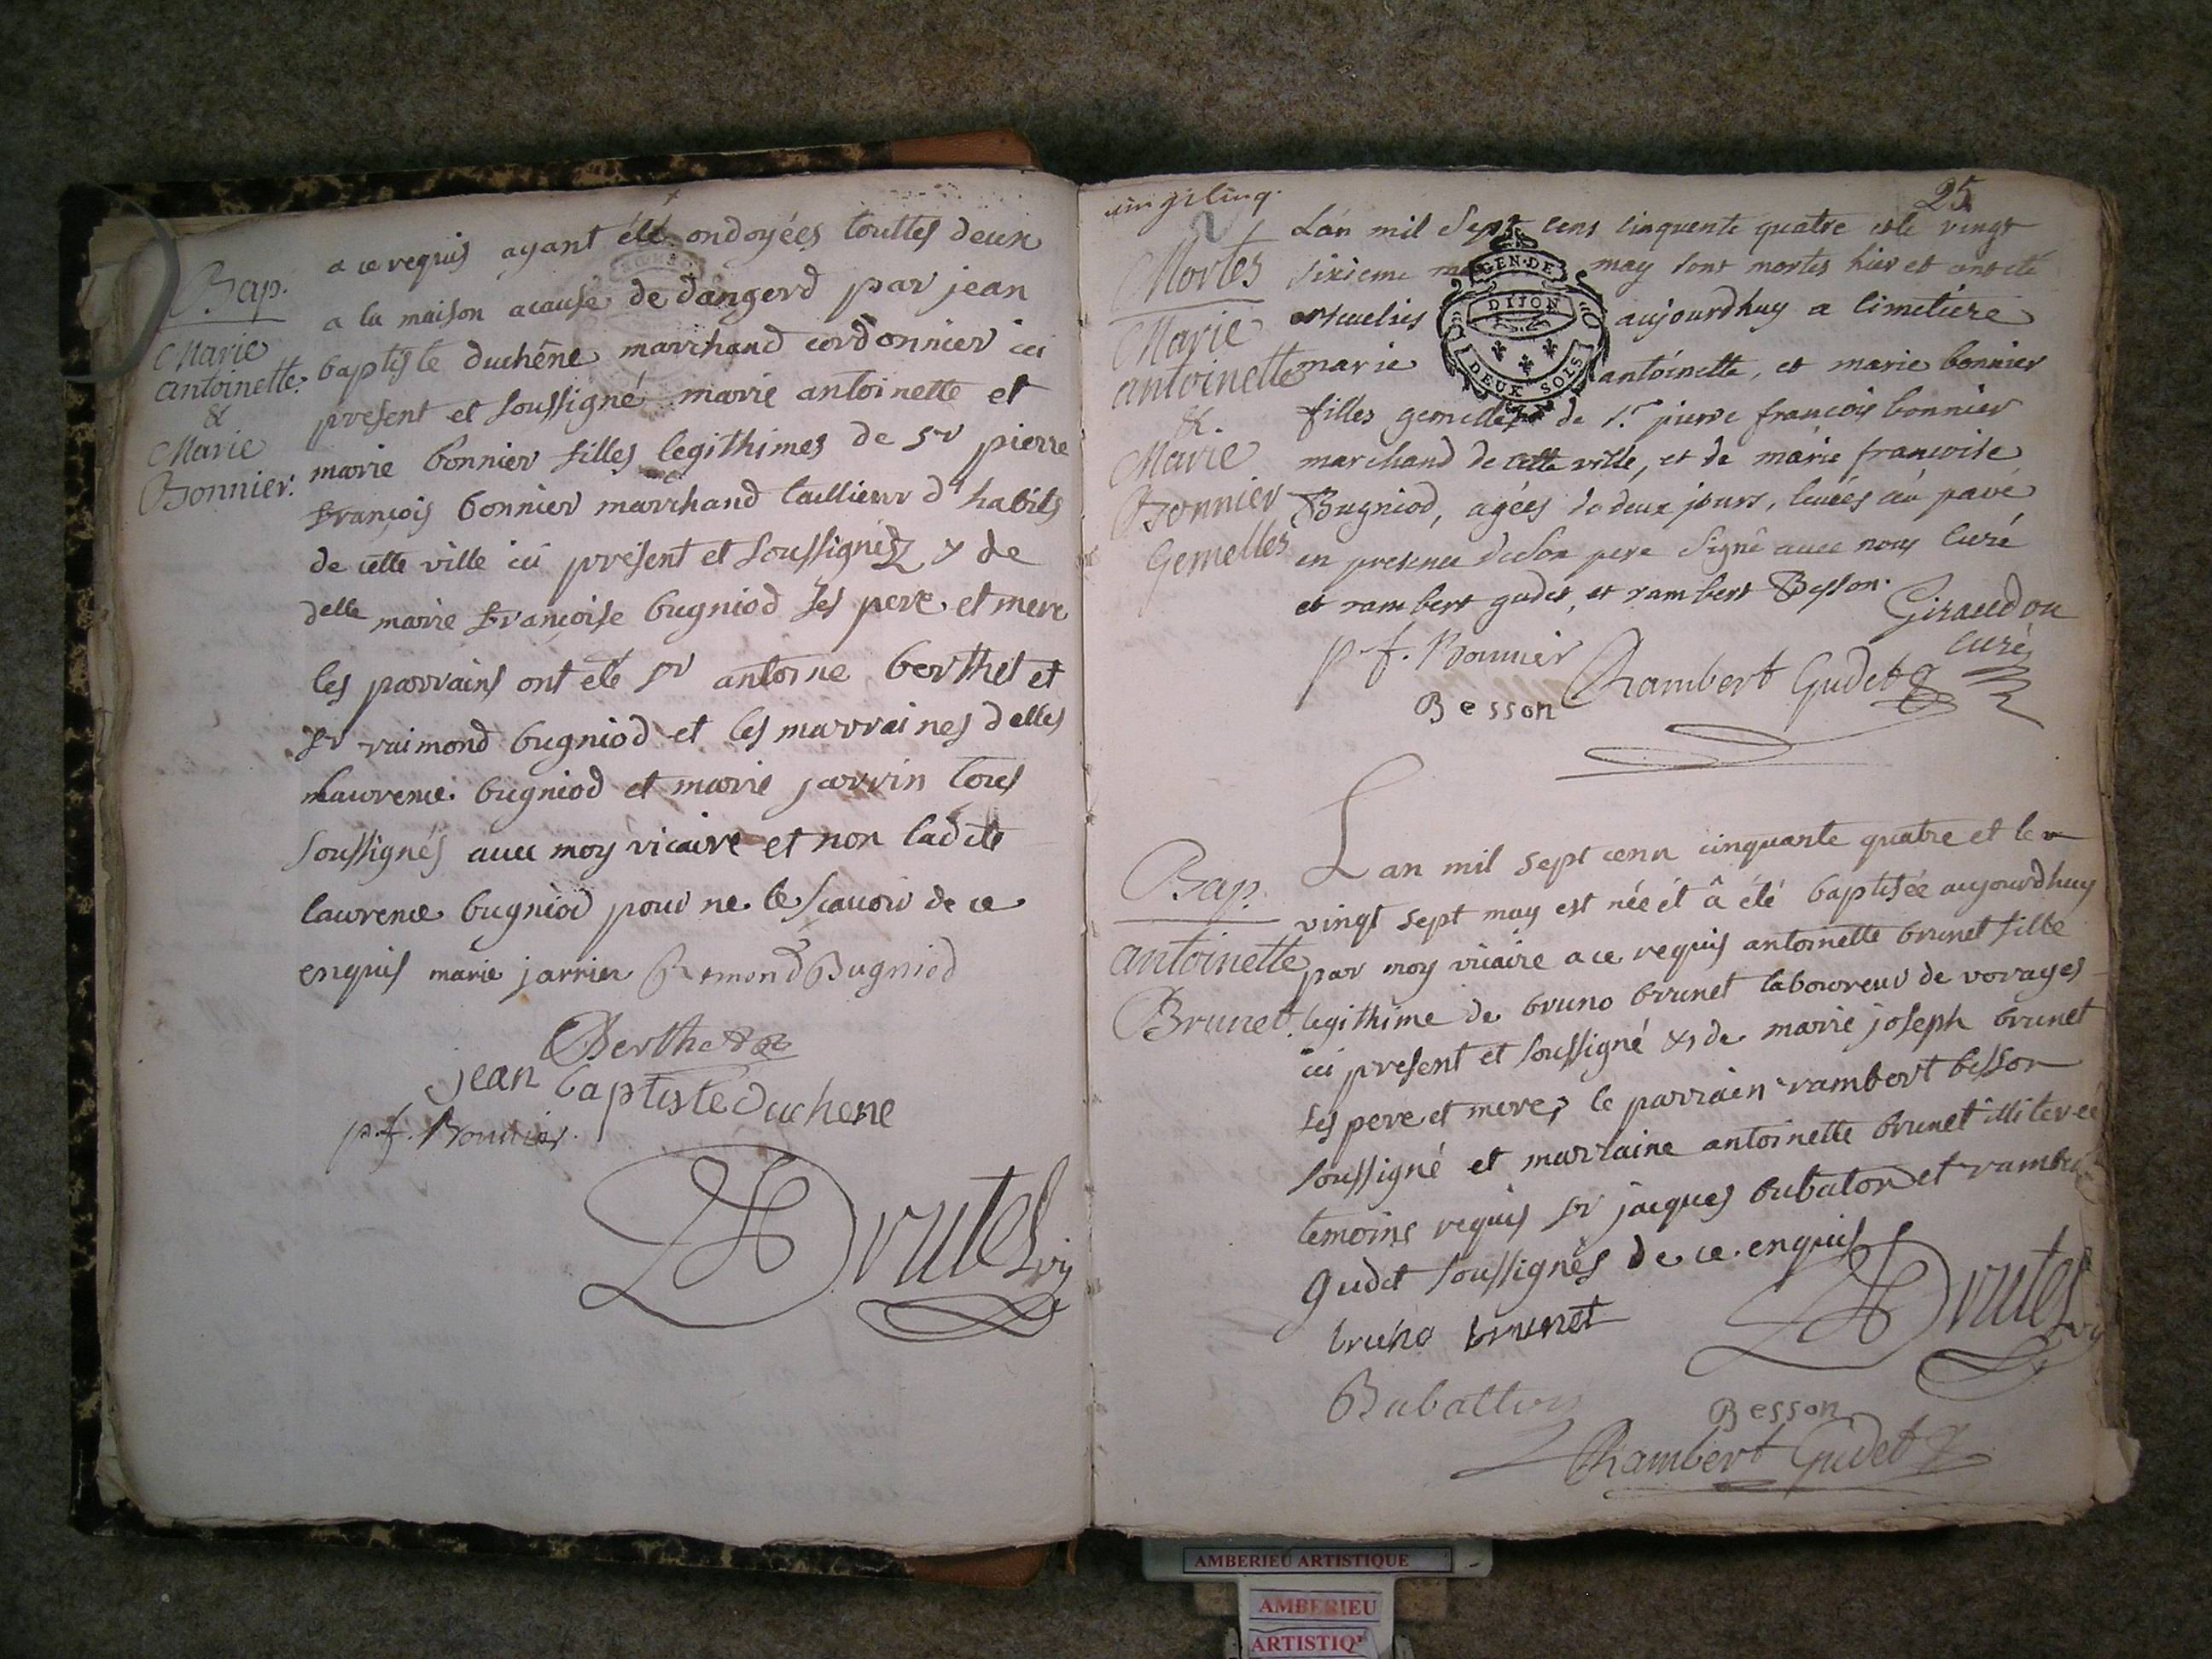 Bap.
Marie
antoinette
&
Marie
Bonnier.
a ce requis ayant été ondoyées touttes deux
a la maison acause de dangerd par jean
baptiste duchêne marchand cordonnier ici
present et soussigné marie antoinette et
marie bonnier filles legithimes de sr pierre
françois bonnier marchand taillieur d'habits
de cette ville ici présent et soussignez & de
delle marie françoise bugniod ses pere et mere
les parrains ont été sr antoine berthet et
sr raimond bugniod et les marraines delles
laurence bugniod et marie jarrin tous
soussignés avec moy vicaire et non ladite
laurence bugniod pour ne le scavoir de ce
enquis marie jarrin Remond Bugniod
Berthet
jean baptiste duchene
p. f. Bonnier.
Drutel vic
vingt cinq.
25
2
Mortes
Marie
antoinette
&.
Marie
Bonnier
Gemelles
L'an mil sept cens cinquente quatre et le vingt
sixieme may sont mortes hier et ont été
aujourdhuy a cimetiere
marie antoinette, et marie bonnier
filles gemelles de sr. pierre francois bonnier
marchand de cette ville, et de marie francoise
Bugniod, agées de deux jours, levées au pavé
en presence de son pere signé avec nous curé
et rambert gudet, et rambert Besson.
Giraudon
curé
p. f. Bonnier
Rambert Gudet
Besson
GEN. DE
DIJON
DEUX SOLS
Bap.
antoinette
Brunet.
L'an mil sept cens cinquante quatre et le
vingt sept may est née et â été baptisée aujourdhuy
par moy vicaire a ce requis antoinette brunet fille
legithime de bruno brunet laboureur de vorages
ici present et soussigné & de marie joseph brunet
ses pere et mere, le parrain rambert besson
soussigné et marraine antoinette brunet illiterée
temoins requis sr jacques bubaton et rambert
gudet soussignés de ce enquis
bruno brunet
Drutel vic
Babatton
Besson
Rambert Gudet
AMBERIEU ARTISTIQUE
AMBERIEU
ARTISTIQ